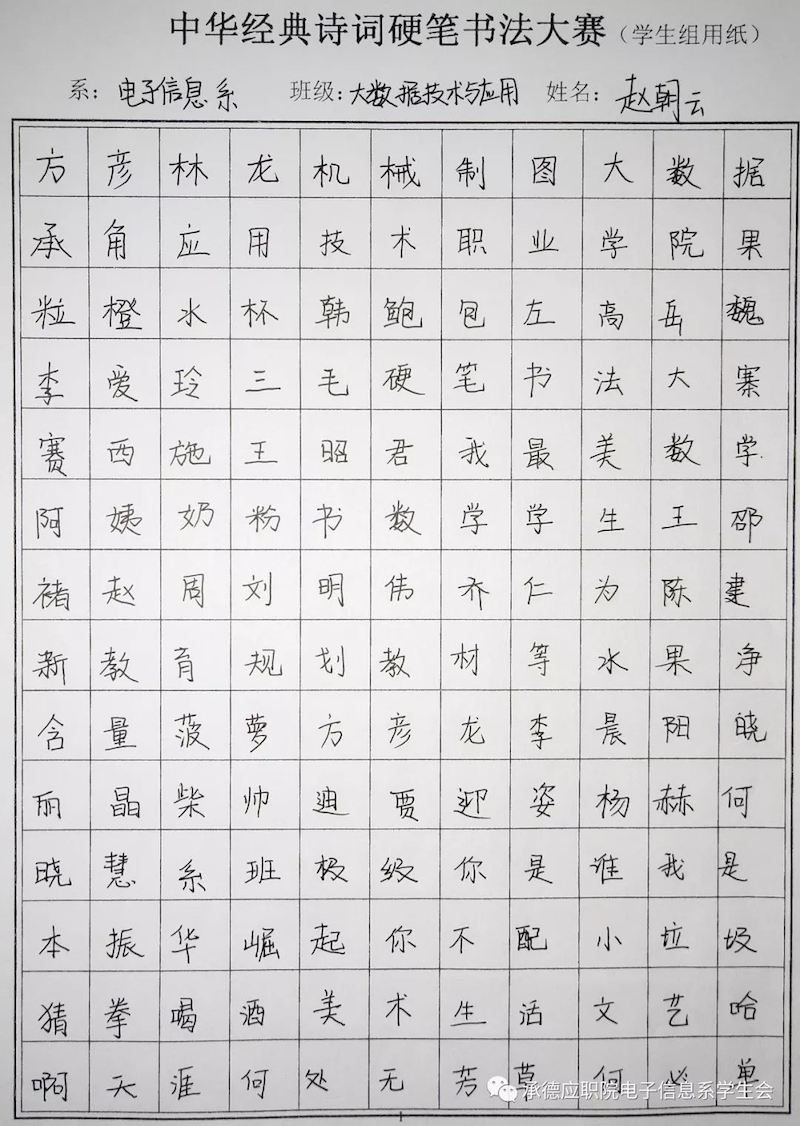 中华经典诗词硬笔书法大赛（学生组用纸）
系：电子信息系 班级：大数据技术与应用 姓名：赵朝云
方彦林龙机械制图大数据
承角应用技术职业学院果
粒橙水杯韩鲍包左高岳魏
李爱玲三毛硬笔书法大寨
赛西施王昭君我最美数学
阿姨奶粉书数学学生王邵
褚赵周刘明伟齐仁为陈建
新教育规划教材等水果净
含量菠萝方彦龙李晨阳晓
丽晶柴帅迪贾迎姿杨赫何
晓慧系班极级你是谁我是
本振华崛起你不配小垃圾
猜拳喝酒美术生活文艺哈
啊天涯何处无芳草何必单
承德应职院电子信息系学生会
1